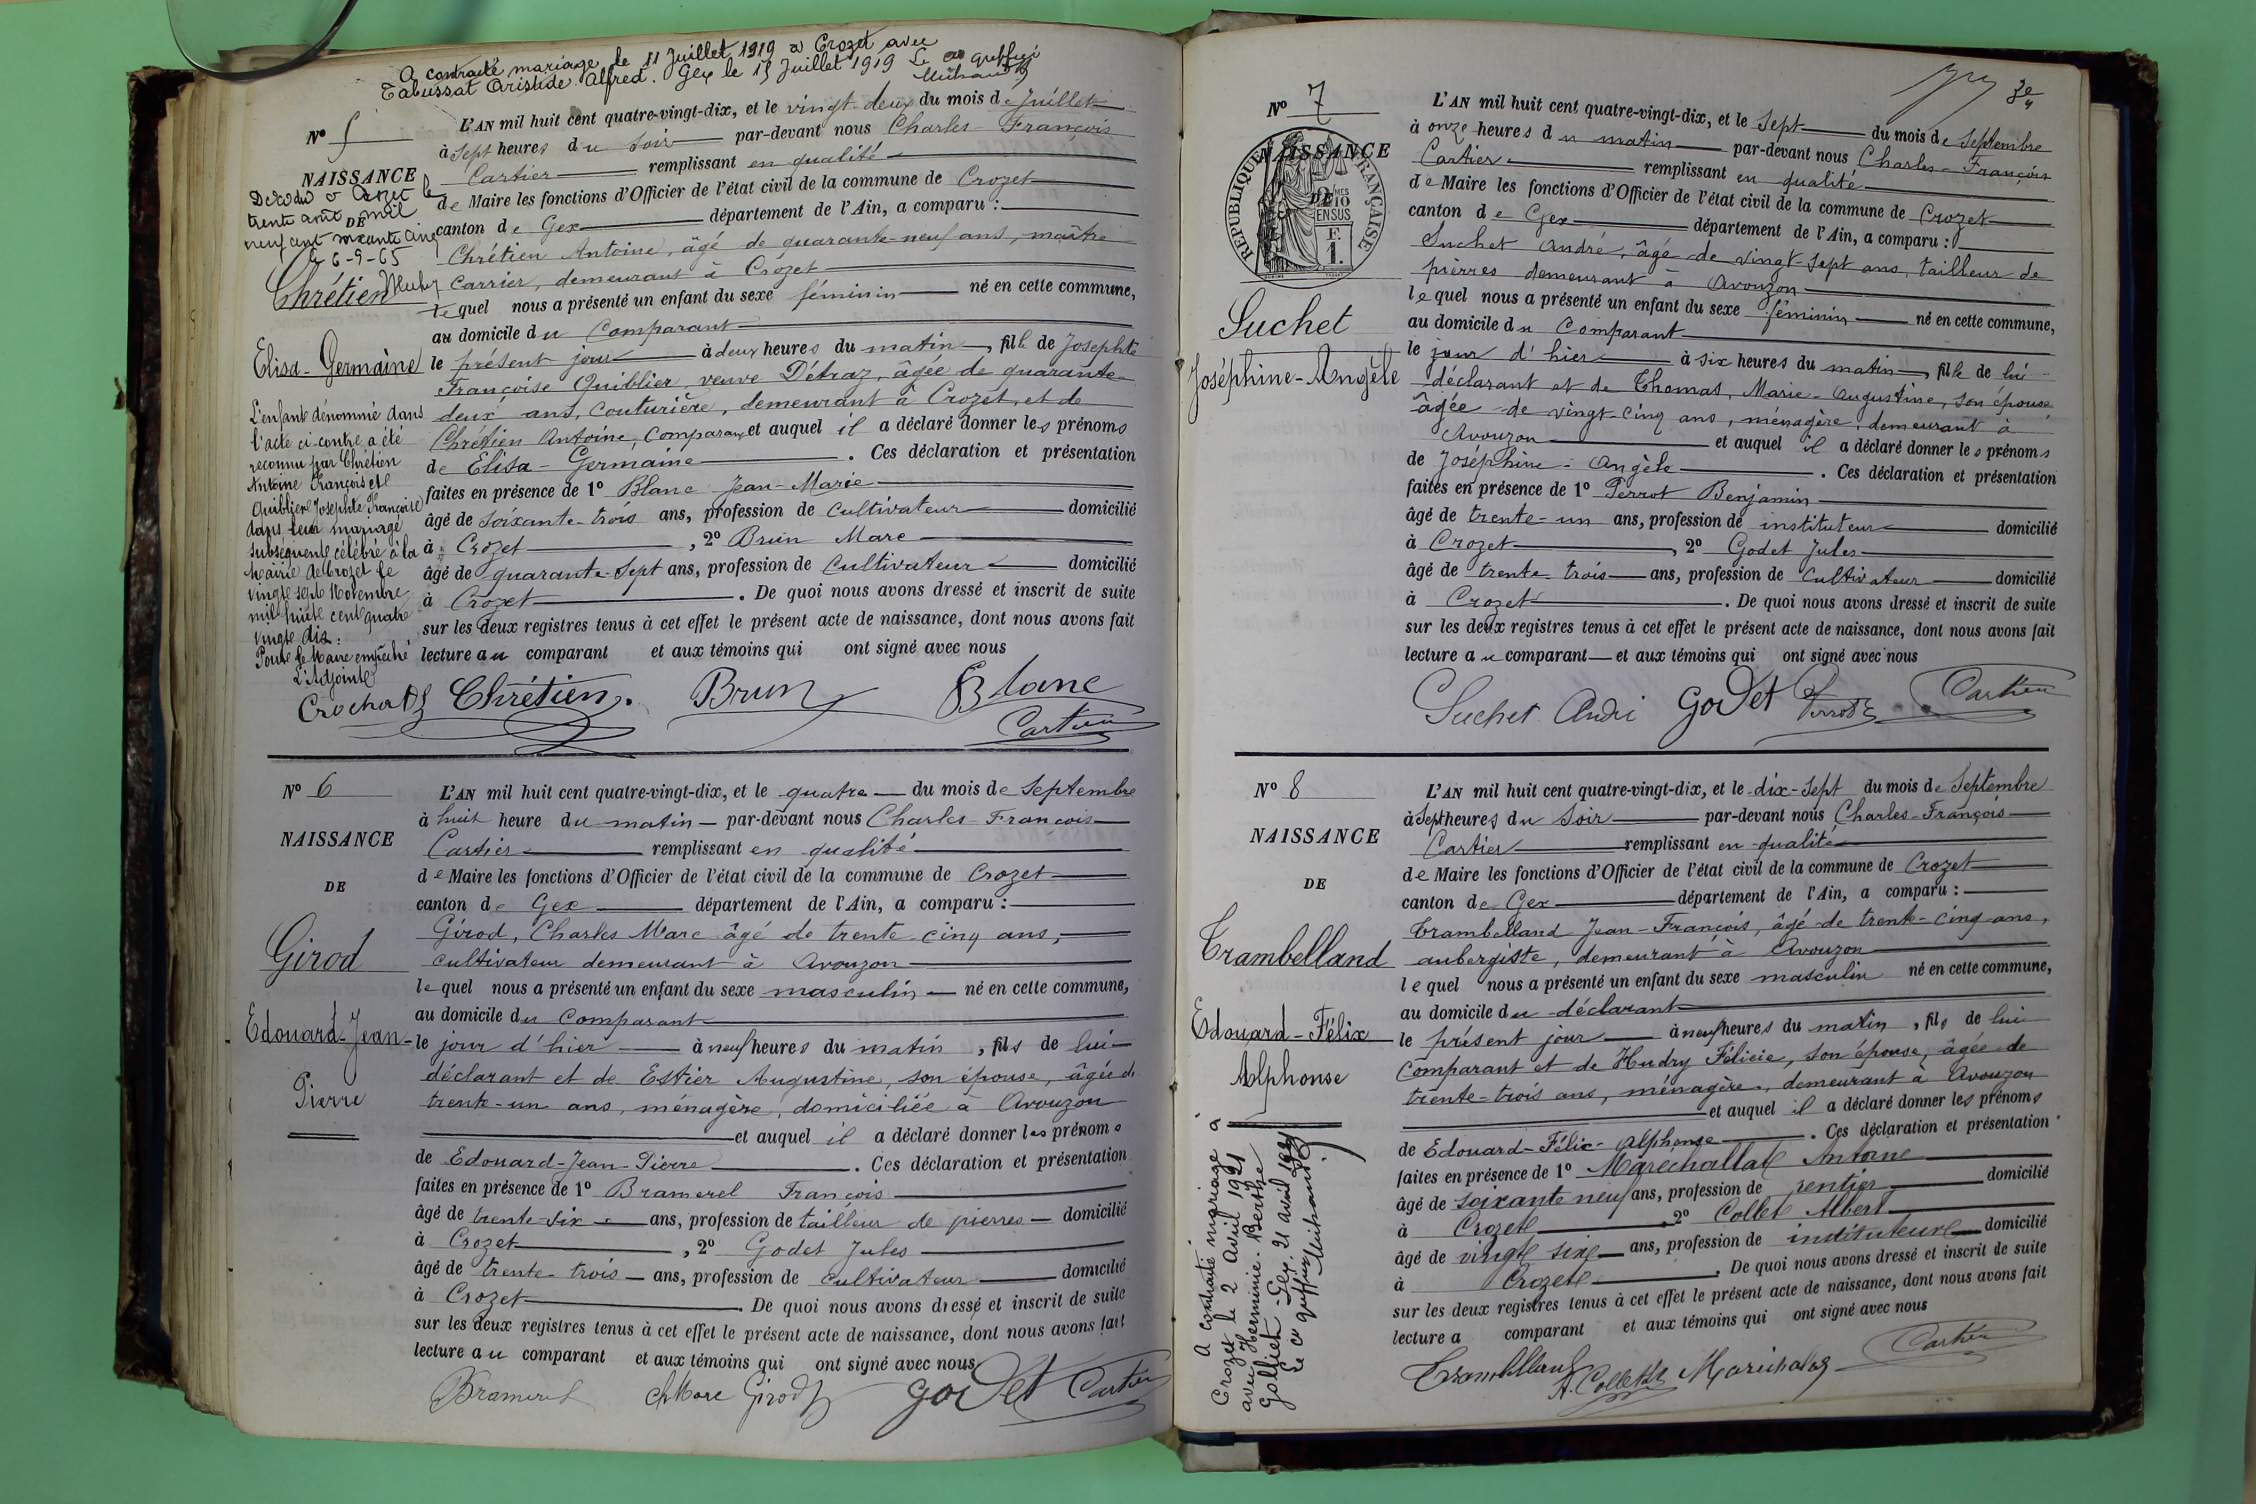 A contracté mariage le 11 Juillet 1919 à Crozet avec
Tabussat Aristide Alfred. Gex le 15 Juillet 1919 Le greffier
N° 5
NAISSANCE
DE
Décédée à Crozet le
trente août mil
neuf cent soixante cinq
le 6-9-65
Chrétien
Elisa-Germaine
L'enfant dénommé dans
l'acte ci-contre a été
reconnu par Chrétien
Antoine François et
Quiblier Josephte Françoise
dans leur mariage
subséquent célébré à la
Mairie de Crozet le
vingt sept Novembre
mil huit cent quatre
vingt dix.
Pour le Maire empêché
L'Adjoint
L'AN mil huit cent quatre-vingt-dix, et le vingt-deux du mois de Juillet
à sept heures du soir par-devant nous Charles François
Cartier remplissant en qualité
de Maire les fonctions d'Officier de l'état civil de la commune de Crozet
canton de Gex département de l'Ain, a comparu :
Chrétien Antoine, âgé de quarante-neuf ans, maître
carrier, demeurant à Crozet
lequel nous a présenté un enfant du sexe féminin né en cette commune,
au domicile du comparant
le présent jour à deux heures du matin, fille de Josephte
Françoise Quiblier, veuve Détraz, âgée de quarante-
deux ans, couturière, demeurant à Crozet, et de
Chrétien Antoine, comparant et auquel il a déclaré donner les prénoms
de Elisa-Germaine. Ces déclaration et présentation
faites en présence de 1° Blanc Jean-Marie
âgé de soixante-trois ans, profession de cultivateur domicilié
à Crozet, 2° Brun Marc
âgé de quarante-sept ans, profession de cultivateur domicilié
à Crozet. De quoi nous avons dressé et inscrit de suite
sur les deux registres tenus à cet effet le présent acte de naissance, dont nous avons fait
lecture au comparant et aux témoins qui ont signé avec nous
Chrétien. Brun Blanc
Cartier
N° 6
NAISSANCE
DE
Girod
Edouard-Jean-
Pierre
L'AN mil huit cent quatre-vingt-dix, et le quatre du mois de Septembre
à huit heure du matin par-devant nous Charles-François
Cartier remplissant en qualité
de Maire les fonctions d'Officier de l'état civil de la commune de Crozet
canton de Gex département de l'Ain, a comparu :
Girod, Charles Marc âgé de trente cinq ans,
cultivateur demeurant à Avouzon
lequel nous a présenté un enfant du sexe masculin né en cette commune,
au domicile du comparant
le jour d'hier à neuf heures du matin, fils de lui
déclarant et de Estier Augustine, son épouse, âgée de
trente-un ans, ménagère, domiciliée à Avouzon
et auquel il a déclaré donner les prénoms
de Edouard-Jean-Pierre. Ces déclaration et présentation
faites en présence de 1° Bramerel François
âgé de trente-six ans, profession de tailleur de pierres domicilié
à Crozet, 2° Godet Jules
âgé de trente-trois ans, profession de cultivateur domicilié
à Crozet. De quoi nous avons dressé et inscrit de suite
sur les deux registres tenus à cet effet le présent acte de naissance, dont nous avons fait
lecture au comparant et aux témoins qui ont signé avec nous
Bramerel Ch Marc Girod Godet Cartier
N° 7
NAISSANCE
DE
RÉPUBLIQUE FRANÇAISE
Suchet
Joséphine-Angèle
L'AN mil huit cent quatre-vingt-dix, et le sept du mois de Septembre
à onze heures du matin par-devant nous Charles-François
Cartier remplissant en qualité
de Maire les fonctions d'Officier de l'état civil de la commune de Crozet
canton de Gex département de l'Ain, a comparu :
Suchet André, âgé de vingt-sept ans, tailleur de
pierres demeurant à Avouzon
lequel nous a présenté un enfant du sexe féminin né en cette commune,
au domicile du comparant
le jour d'hier à six heures du matin, fille de lui
déclarant et de Thomas, Marie-Augustine, son épouse
âgée de vingt-cinq ans, ménagère, demeurant à
Avouzon et auquel il a déclaré donner les prénoms
de Joséphine-Angèle. Ces déclaration et présentation
faites en présence de 1° Perrot Benjamin
âgé de trente-un ans, profession de instituteur domicilié
à Crozet, 2° Godet Jules
âgé de trente-trois ans, profession de cultivateur domicilié
à Crozet. De quoi nous avons dressé et inscrit de suite
sur les deux registres tenus à cet effet le présent acte de naissance, dont nous avons fait
lecture au comparant et aux témoins qui ont signé avec nous
Suchet André Godet Perrot Cartier
N° 8
NAISSANCE
DE
Trambelland
Edouard-Félix
Alphonse
A contracté mariage à
Crozet le 2 Avril 1921
avec Herminie Berthe
Golliet. Gex, 21 avril 1921
Le greffier
L'AN mil huit cent quatre-vingt-dix, et le dix-sept du mois de Septembre
à sept heures du soir par-devant nous Charles-François
Cartier remplissant en qualité
de Maire les fonctions d'Officier de l'état civil de la commune de Crozet
canton de Gex département de l'Ain, a comparu :
Trambelland Jean-François, âgé de trente-cinq ans,
aubergiste, demeurant à Avouzon
lequel nous a présenté un enfant du sexe masculin né en cette commune,
au domicile du déclarant
le présent jour à neuf heures du matin, fils de lui
comparant et de Hudry Félicie, son épouse, âgée de
trente-trois ans, ménagère, demeurant à Avouzon
et auquel il a déclaré donner les prénoms
de Edouard-Félix-Alphonse. Ces déclaration et présentation
faites en présence de 1° Maréchallat Antoine
âgé de soixante neuf ans, profession de rentier domicilié
à Crozet, 2° Collet Albert
âgé de vingt six ans, profession de instituteur domicilié
à Crozet. De quoi nous avons dressé et inscrit de suite
sur les deux registres tenus à cet effet le présent acte de naissance, dont nous avons fait
lecture a comparant et aux témoins qui ont signé avec nous
Trambelland A. Collet Cartier